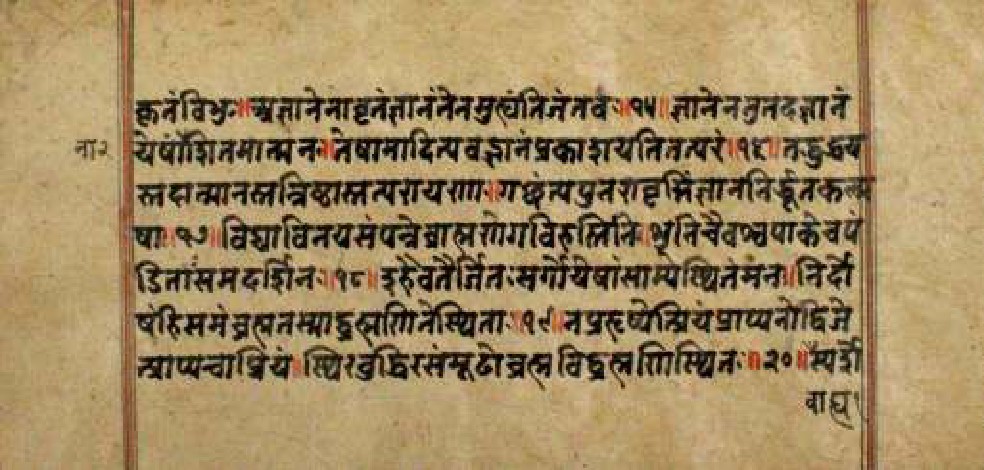 कृतं विभुः ॥ अज्ञानेनावृतं ज्ञानं तेन मुह्यंति जंतवः ॥ १५ ॥ ज्ञानेन तु तदज्ञानं
ना२ येषां नाशितमात्मनः ॥ तेषामादित्यवज्ज्ञानं प्रकाशयति तत्परं ॥ १६ ॥ तद्बुद्धय
स्तदात्मानस्तन्निष्ठास्तत्परायणाः ॥ गच्छंत्यपुनरावृत्तिं ज्ञाननिर्द्धूतकल्म
षाः ॥ १७ ॥ विद्याविनयसंपन्ने ब्राह्मणे गवि हस्तिनि ॥ शुनि चैव श्वपाके च पं
डिताः समदर्शिनः ॥ १८ ॥ इहैव तैर्जितः सर्गो येषां साम्ये स्थितं मनः ॥ निर्दो
षं हि समं ब्रह्म तस्माद्ब्रह्मणि ते स्थिताः ॥ १९ ॥ न प्रहृष्येत्प्रियं प्राप्य नोद्विजे
त्प्राप्य चाप्रियं ॥ स्थिरबुद्धिरसंमूढो ब्रह्मविद्ब्रह्मणि स्थितः ॥ २० ॥ स्पर्शे
बाह्य१